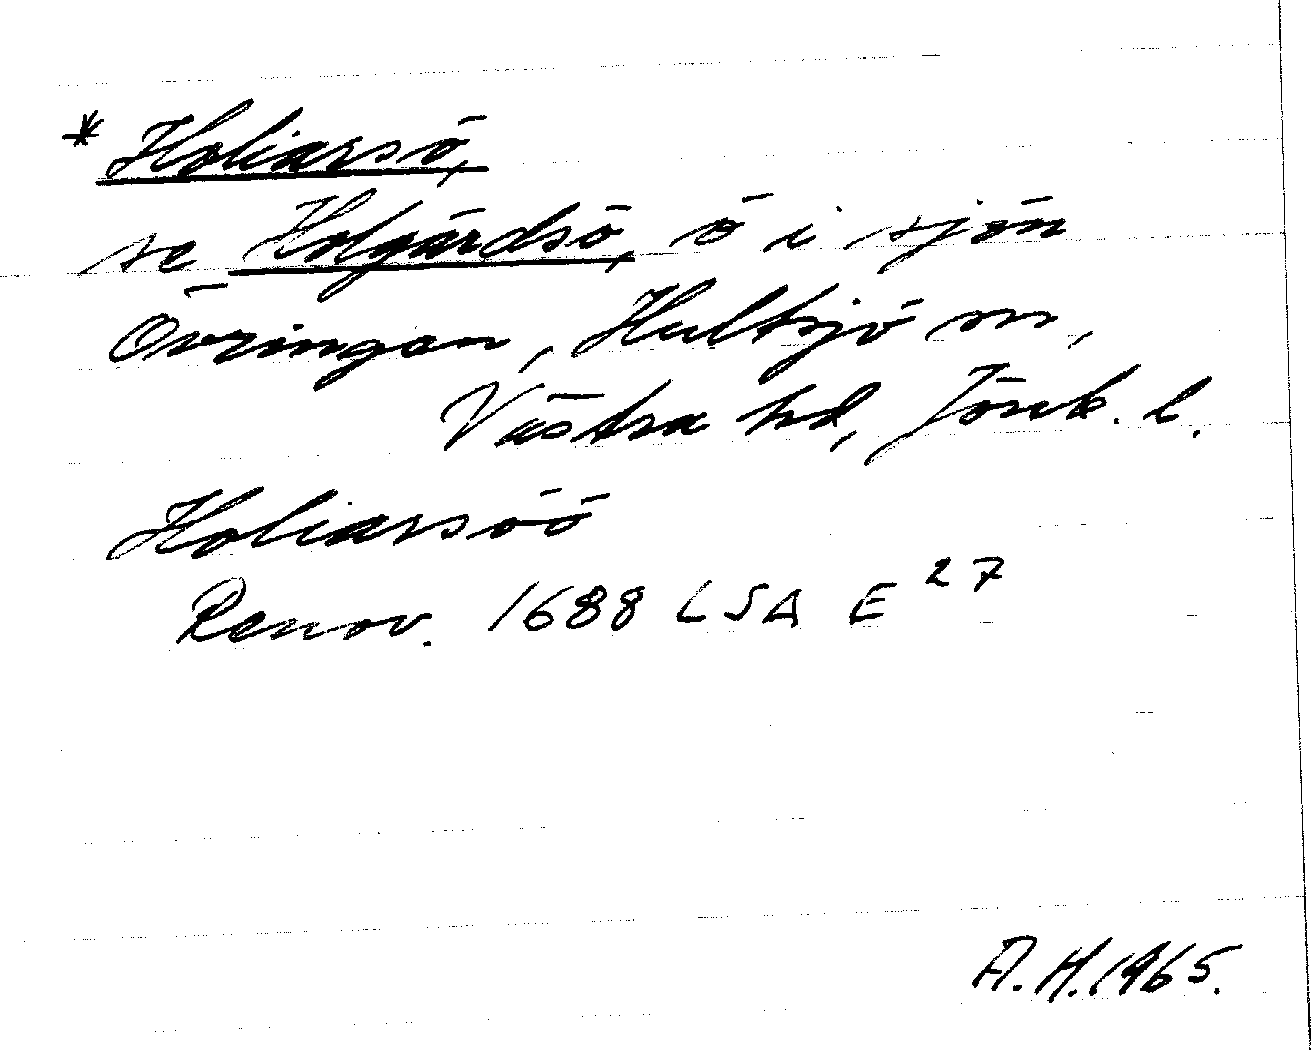 * Holiarsö,
se Holgärdsö, ö i sjön
Övringen, Hultsjö sn,
Västra hd, Jönk. l.
Holiarsöö
Renov. 1688 LSA E 27
A.H. 1965.